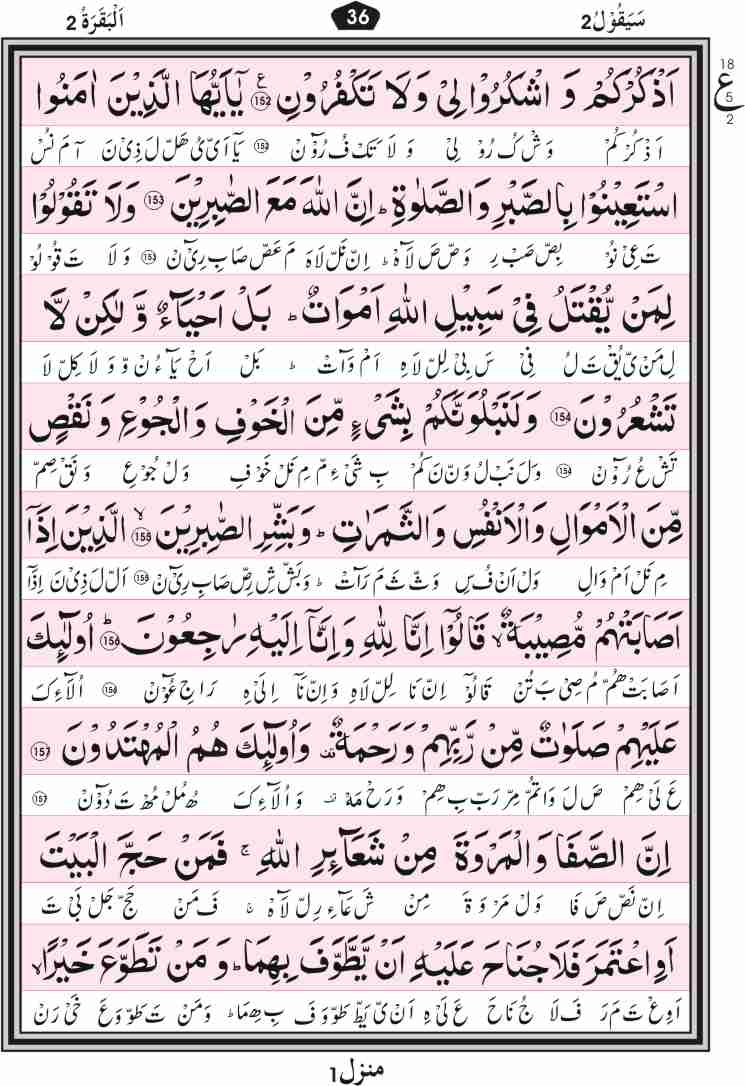 سَیَقُوۡلُ2 36 اَلۡبَقَرَةُ 2
18
ع
5
2
اَذۡكُرۡكُمۡ وَ اشۡكُرُوۡا لِىۡ وَلَا تَكۡفُرُوۡنِ ۞152 ع یٰۤاَیُّهَا الَّذِیۡنَ اٰمَنُوا
اَذۡ كُرۡكُمۡ وَشۡ كُ رُوۡ لِىۡ وَ لَا تَكۡ فُ رُوۡٓنۡ ۞152 یَاۤ اَىۡ ىُ هَلّ لَ ذِىۡ نَ آ مَ نُسۡ
اسۡتَعِیۡنُوۡا بِالصَّبۡرِ وَالصَّلٰوةِ ؕ اِنَّ اللّٰهَ مَعَ الصّٰبِرِیۡنَ ۞153 وَلَا تَقُوۡلُوۡا
تَ عِىۡ نُوۡ بِصّ صَبۡ رِ وَصّ صَ لَاۤهۡ ؕ اِنّ نَلّ لَاهَ مَ عَصّ صَابِ رِىۡٓنۡ ۞153 وَ لَا تَ قُوۡ لُوۡ
لِمَنۡ یُّقۡتَلُ فِىۡ سَبِیۡلِ اللّٰهِ اَمۡوَاتٌ ؕ بَلۡ اَحۡیَآءٌ وَّ لٰكِنۡ لَّا
لِ مَنۡ ىّ یُقۡ تَ لُ فِىۡ سَ بِىۡ لِلّ لَاهِ اَمۡ وَآتۡ ؕ بَلۡ اَحۡ یَآ ءُ نۡ وّ وَ لَا كِلّ لَا
تَشۡعُرُوۡنَ ۞154 وَلَنَبۡلُوَنَّكُمۡ بِشَىۡءٍ مِّنَ الۡخَوۡفِ وَالۡجُوۡعِ وَ نَقۡصٍ
تَشۡ عُ رُوۡٓنۡ ۞154 وَلَ نَبۡ لُ وَنّ نَ كُمۡ بِ شَىۡ ءِ مّ مِ نَلۡ خَوۡ فِ وَلۡ جُوۡعِ وَ نَقۡ صِمّ
مِّنَ الۡاَمۡوَالِ وَالۡاَنۡفُسِ وَالثَّمَرٰتِ ؕ وَبَشِّرِ الصّٰبِرِیۡنَ ۞155 ۙ الَّذِیۡنَ اِذَاۤ
مِ نَلۡ اَمۡ وَالِ وَلۡ اَنۡ فُ سِ وَثّ ثَ مَ رَآتۡ ؕ وَبَشّ شِ رِصّ صَابِ رِىۡٓنۡ ۞155 اَلّ لَ ذِىۡ نَ اِذَاۤ
اَصَابَتۡهُمۡ مُّصِیۡبَةٌ ۙ قَالُوۡۤا اِنَّا لِلّٰهِ وَاِنَّاۤ اِلَیۡهِ رٰجِعُوۡنَ ۞156 ؕ اُولٰٓئِكَ
اَصَابَتۡ هُمّ مُ صِىۡ بَ تُنۡ قَالُوۡۤ اِنّ نَا لِلّ لَاهِ وَاِنّ نَاۤ اِلَىۡ هِ رَاجِ عُوۡٓنۡ ۞156 اُلَآءِ كَ
عَلَیۡهِمۡ صَلَوٰتٌ مِّنۡ رَّبِّهِمۡ وَرَحۡمَةٌ وَاُولٰٓئِكَ هُمُ الۡمُهۡتَدُوۡنَ ۞157
عَ لَىۡ هِمۡ صَ لَ وَاتُمّ مِرّ رَبّ بِ هِمۡ وَ رَحۡ مَهۡ وَ اُلَآءِ كَ هُ مُلۡ مُهۡ تَ دُوۡٓنۡ ۞157
اِنَّ الصَّفَا وَالۡمَرۡوَةَ مِنۡ شَعَآئِرِ اللّٰهِ ۚ فَمَنۡ حَجَّ الۡبَیۡتَ
اِنّ نَصّ صَ فَا وَلۡ مَرۡ وَ ةَ مِنۡ شَ عَآءِ رِلّ لَآهۡ ۚ فَ مَنۡ حَجّ جَلۡ بَىۡ تَ
اَوِاعۡتَمَرَ فَلَاجُنَاحَ عَلَیۡهِ اَنۡ یَّطَّوَّفَ بِهِمَا ؕ وَ مَنۡ تَطَوَّعَ خَیۡرًا ۙ
اَوِعۡ تَ مَ رَ فَ لَا جُ نَاحَ عَ لَىۡ هِ اَنۡ ىّ یَطّ طَوّ وَ فَ بِ هِمَا ؕ وَمَنۡ تَ طَوّ وَعَ خَىۡ رَنۡ
منزل1